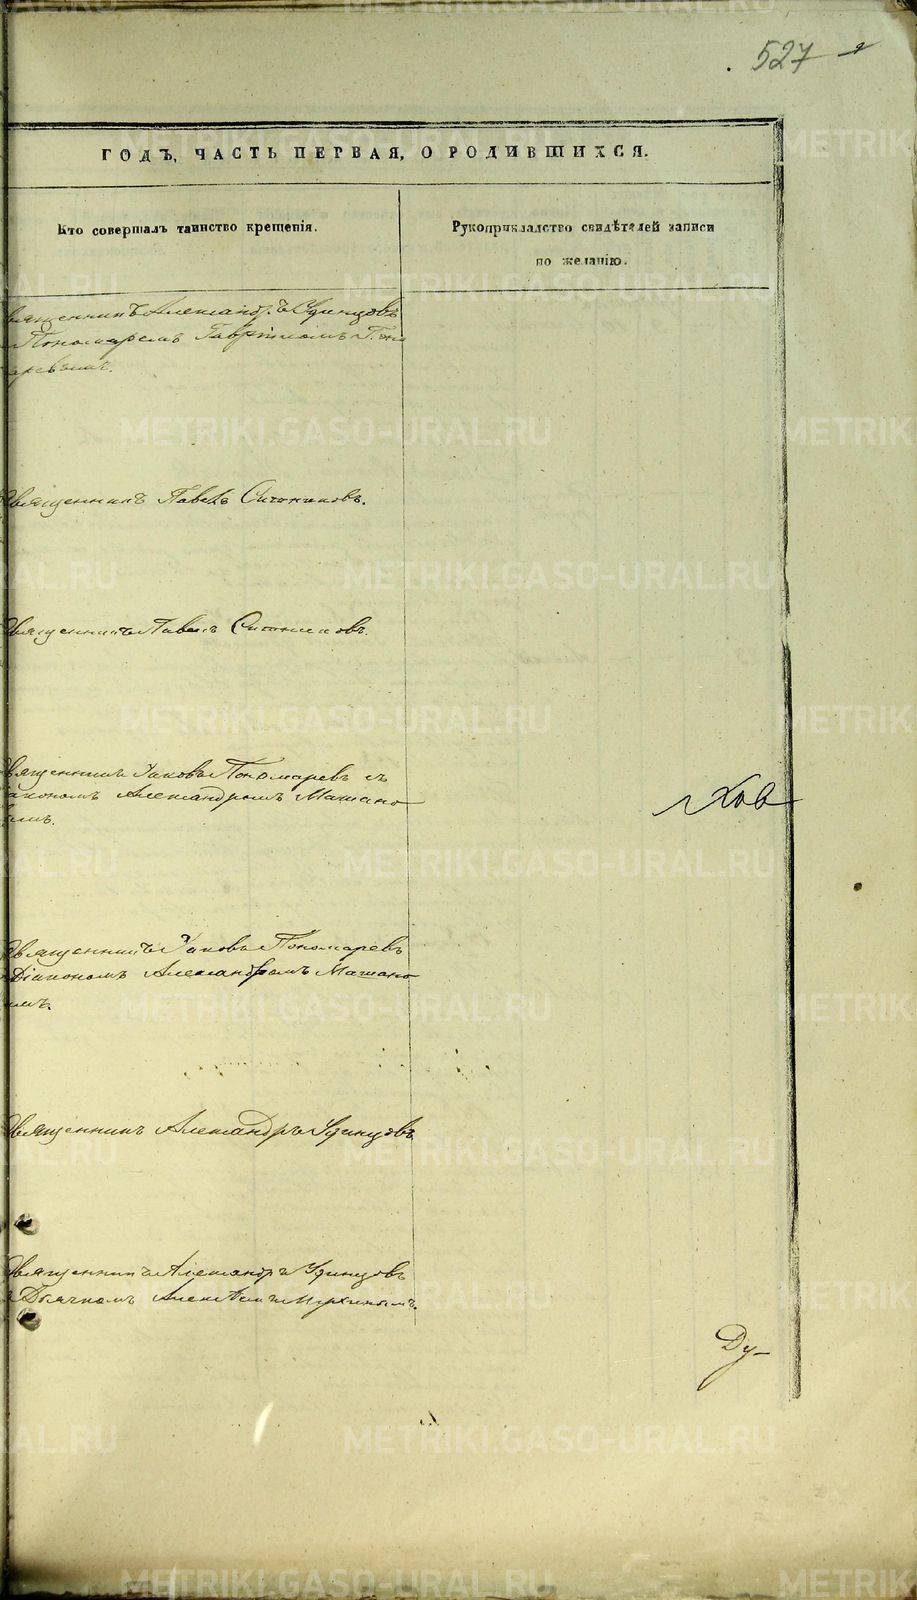 527
ГОДЪ, ЧАСТЬ ПЕРВАЯ, О РОДИВШИХСЯ.
Кто совершалъ таинство крещенія.
Рукоприкладство свидѣтелей записи
по желанію.
Священникъ Александръ Удинцовъ
Пономаремъ Гавріиломъ Поно
маревымъ.
Священникъ Павелъ Ситниковъ.
Священникъ Павелъ Ситниковъ.
Священникъ Іаковъ Пономаревъ съ
Діакономъ Александромъ Мамано
вымъ.
Хов
Священникъ Іаковъ Пономаревъ
Діакономъ Александромъ Мамано
вымъ.
Священникъ Александръ Удинцовъ.
Священникъ Александръ Удинцовъ
Дьячкомъ Алексѣемъ
Ду-
METRIKI.GASO-URAL.RU